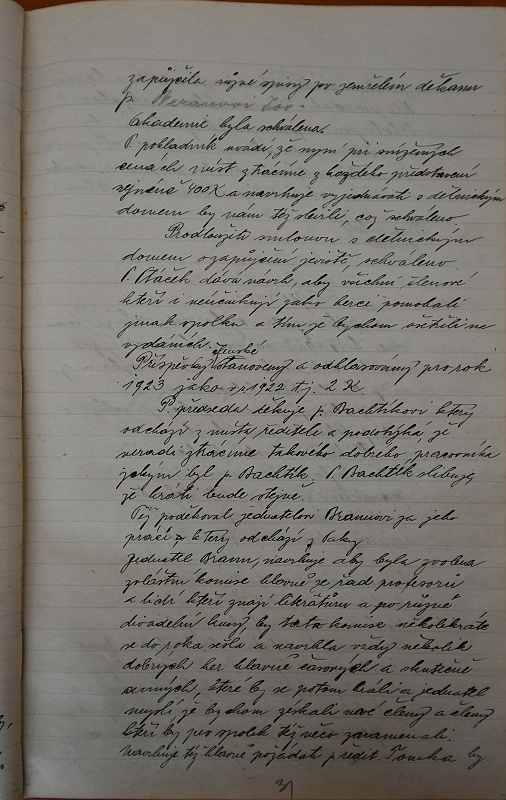 zapůjčila různé spisy po zemřelém děkanu
p.
Akademie byla schválena.
P. pokladník uvádí, že nyní při snížených
cenách míst ztrácíme z každého představení
výnené 400 K a navrhuje vyjednávati s dělnickým
domem by nám též slevili, což schváleno
Prodloužiti smlouvu s dělnickým
domem o zapůjčení jeviště, schváleno.
P. Ptáček dává návrh, aby všichni členové
kteří i neúčinkují jako herci pomohali
jinak spolku a tím že bychom ušetřili na
vydáních.
Příspěvky členské stanoveny a odhlasovány pro rok
1923 jako v r. 1922 t. j. 2 K
P. předseda děkuje p. Bachtíkovi který
odchází z místa ředitele a podotýká, že
neradi ztrácíme takového dobrého pracovníka
jakým byl p. Bachtík. P. Bachtík slibuje
že hráti bude stejně.
Též poděkoval jednatelovi Braunovi za jeho
práci a který odchází z
Jednatel Braun, navrhuje aby byla zvolena
zvláštní komise hlavně ze řad profesorů
a lidí kteří znají literaturu a po různé
divadelní kusy by tato komise několikráte
se do roka sešla a navrhla vždy několik
dobrých her hlavně časových a skutečně
cenných, které by se potom hráli a jednatel
myslí že bychom získali nové členy a členy
kteří by pro spolek též něco znamenali.
Navrhuje též hlavně požádati p. ředit. Tomka by
31